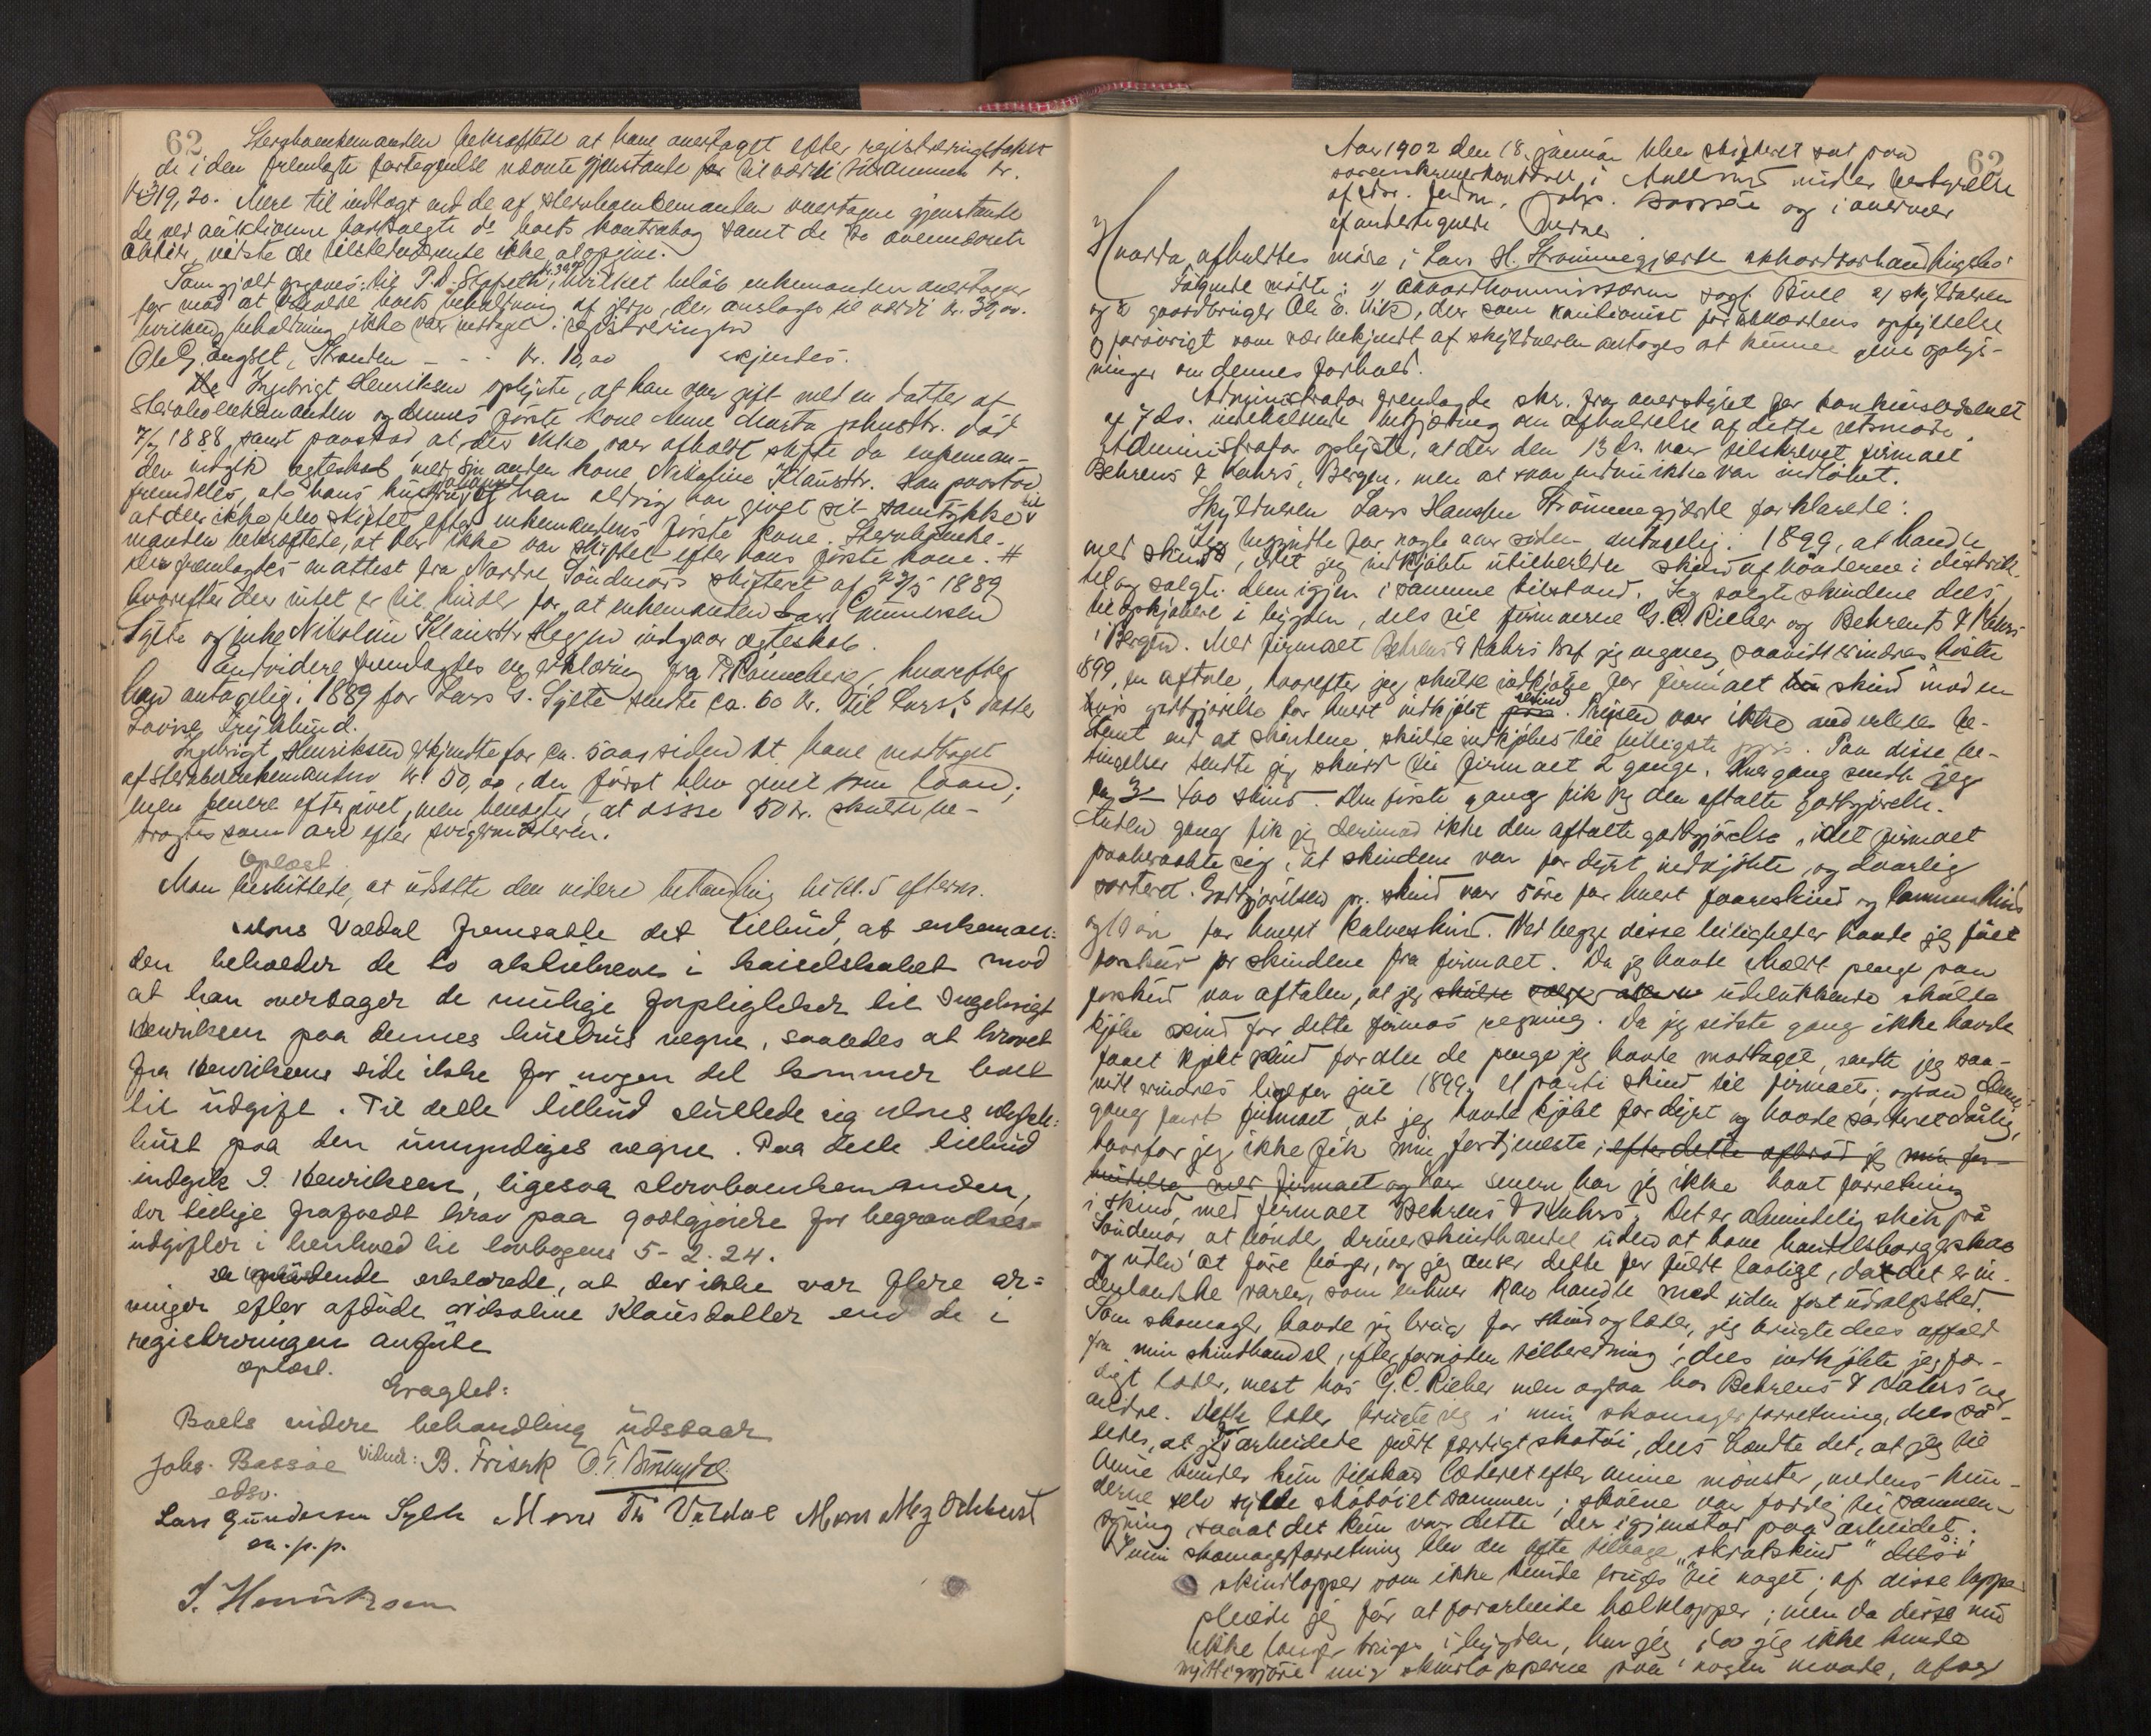 62
Sterboenkemanden bekræftede at have overtaget efter registreringstakst
de i den fremlagte fortegnelse nævnte gjenstande til værdi sammen kr.
19,20. Mere til indtægt end de af sterboenkemanden overtagne gjenstande
de ved auktionen bortsolgte do boets kontrabog samt de to ovennævnte
aktier, vidste de tilstedeværende ikke at opgive.
Som gjæld opgaves: til P. D. Stafseth, hvilket beløb enkemanden overtager
for mod at beholde boets beholdning af jern, der anslages til værdi kr. 39,00.
hvilken beholdning ikke var medtaget i registreringen
Ole G. Engset, Stranden - - - kr. 10,00 erkjendes.
Ingebrigt Henriksen oplyste, at han var gift med en datter af
sterboenkemanden og dennes første kone Anne Marta Johnsdtr. død
1888 samt paastod, at der ikke var afholdt skifte da enkeman-
den indgik egteskab med sin anden kone Nikoline Klausdtr. Han paastod
fremdeles, at hans hustru og han aldrig har givet sit samtykke til
at der ikke blev skiftet efter enkemandens første kone. Sterboenke-
manden bekræftede, at der ikke var skiftet efter hans første kone. #
Der fremlagdes en attest fra Nordre Søndmørs skifteret af 28/5 1889
hvorefter der intet er til hinder for, at enkemanden Lars Gunnersen
Sylte og enke Nikoline Klausdtr Heggen indgaar egteskab.
Endvidere fremlagdes en erklæring fra P. Rønneberg, hvorefter
han antagelig. 1889 for Lars G. Sylte sendte ca. 60 kr. til Lars's datter
Lovise Frykhund.
Ingebrigt Henriksen erkjendte for ca. 5 aar siden at have modtaget
af sterboenkemanden kr. 50,00, der først blev givet som laan;
men senere eftergivet, men benegter, at disse 50 kr. skulde be-
tragtes som arv efter svigermoderen.
Oplæst
Man besluttede, at udsætte den videre behandling til kl. 5 efterm.
Mons Valdal fremsatte det tilbud, at enkeman-
den beholder de to aktiebreve i kaiselskabet mod
at han overtager de mulige forpligtelser til Ingebrigt
Henriksen paa dennes hustrus vegne, saaledes at kravet
fra Henriksens side ikke for nogen del kommer boet
til udgift. Til dette tilbud sluttede sig Mons Megrd-
hust paa den umyndiges vegne. Paa dette tilbud
indgik I. Henriksen, ligesaa sterboenkemanden,
der tillige frafaldt krav paa godtgjørelse for begravelses-
udgifter i henhold til lovbogens 5-2-24.
De mødende erklærede, at der ikke var flere ar-
vinger efter afdøde Nikoline Klausdatter end de i
registreringen anførte
oplæst.
Eragtet:
Boets videre behandling udstaar
Johs. Bassøe Vidner: B. Frisak
edsv.
Lars Gundersen Sylte Mons Th Valdal Mons Megrdehust
m. p. p.
I. Henriksen
62
Aar 1902 den 18. januar blev skifteret sat paa
sorenskriverkontoret i Aalesund under bestyrelse
af edsv. fuldm. Johs. Bassøe og i overvær
af undertegnede vidner
Hvorda afholdtes møde i Lars H. Strømmegjærde akkordforhandlingsbo
Følgende mødte: 1) Akkordkommissæren sagf. Bull 2) skyldneren
og 3 gaardbruger Ole E. Vik, der som kautionist for akkordens opfyldelse
og forøvrigt som vel bekjendt af skyldneren antages at kunne give oplys-
ninger om dennes forhold.
Administrator fremlagde skr. fra overstyret for konkursvæsenet
af 7 ds. indeholdende begjæring om afholdelse af dette retsmøde.
Administrator oplyste, at der den 13 ds. var tilskrevet firmaet
Behrens & Kahrs, Bergen, men at svar endnu ikke var indløbet.
Skyldneren Lars Hanssen Strømmegjærde forklarede:
Jeg begyndte for nogle aar siden antagelig. 1899, at handle
med skind, idet jeg indkjøbte utilberedte skind af bønderne i distrik-
tet og solgte dem igjen i samme tilstand. Jeg solgte skindene dels
til opkjøbere i bygden, dels til firmaerne G. C. Rieber og Behrens & Kahrs
i Bergen. Med firmaet Behrens & Kahrs traf jeg engang saavidt erindres høsten
1899, en aftale, hvorefter jeg skulde indkjøbe for firmaet skind mod en
vis godtgjørelse for hvert indkjøbt skind. Prisen var ikke anderledes be-
stemt end at skindene skulde indkjøbes til billigste pris. Paa disse be-
tingelser sendte jeg skind til firmaet 2 gange. Hver gang sendte jeg
ca 3-400 skind. Den første gang fik jeg den aftalte godtgjørelse.
Anden gang fik jeg derimod ikke den aftalte godtgjørelse, idet firmaet
paaberaabte sig, at skindene var for dyrt indkjøbte, og daarlig
sorteret. Godtgjørelsen pr. skind var 5 øre for hvert faareskind og lammeskind
og 10 øre for hvert kalveskind. Ved begge disse leiligheter havde jeg faaet
forskud for skindene fra firmaet. Da jeg havde faaet penge paa
forskud var aftalen, at jeg skulde sælge alle udelukkende skulde
kjøbe skind for dette firmas regning. Da jeg sidste gang ikke havde
faaet kjøbt skind for alle de penge jeg havde modtaget, sendte jeg saa-
vidt erindres lige før jul 1899, et parti skind til firmaet; ogsaa denne
gang fandt firmaet, at jeg havde kjøbt for dyrt og havde sorteret dårlig,
hvorfor jeg ikke fik min fortjeneste; efter dette afbrød jeg min for-
bindelse med firmaet og har senere har jeg ikke havt forretning
i skind med firmaet Behrens & Kahrs. Det er almindelig skik på
Søndmør at bønder driver skindhandel uden at have handelsborgerskab
og uden at føre bøger, og jeg anser dette for fuldt lovlige, da det er in-
denlandske varer, som enhver kan handle med uden fast udsalgssted.
Som skomager havde jeg brug for skind og læder, jeg brugte dels affald
fra min skindhandel, efter fornøden tilberedning, dels indkjøbte jeg fær-
digt læder, mest hos G. C. Rieber men ogsaa hos Behrens & Kahrs og
andre. Dette læder brugte jeg i min skomagerforretning, dels så-
ledes, at jeg forarbeidede fuldt færdigt skotøi, dels hændte det, at jeg til
mine kunder kun tilskar læderet efter mine mønster, medens kun-
derne selv syede skotøiet sammen; skoene var færdig til sammen-
syning saaat det kun var dette der igjenstod paa arbeidet.
I min skomagerforretning blev der ofte tilbage "skrabskind" dels i
skindlapper som ikke kunde bruges til noget; af disse lapper
pleiede jeg før at forarbeide hælklapper; men da disse nu
ikke længer bruges i bygden, har jeg ikke kunde
nyttiggjøre mig skindlapperne paa nogen maade, afsag